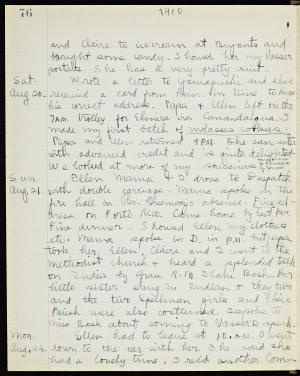 76
1910
and Claire to icecream at Bryants and
bought some candy. I showed her my Vassar
She has a very pretty
Sat. Wrote a letter to Yamaguchi and also
Aug 20. received a card from him in time to know
his correct address. Papa & Ellen left on the
7 A.M. trolley for Elmira via Canandaigua. I
made my first batch of molasses cookies.
Papa and Ellen returned 9 P.M. She can enter
with advanced credit and is quite delighted.
We looked at more of my
Sun. Ellen Mama & I drove to
Aug 21. with double carriage. Mama spoke in the
fire hall in Rev. absence. Fine ad-
dress on Porto Rico. Came home by East Ave.
Fine dinner. I showed Ellen my clothes
etc. Mama spoke in D. in P.M. but papa
took her. Ellen, Claire and I went to the
methodist church & heard a splendid talk
on India by Grace Bash. Her
little sister sang in Indian & they two
and the two Spellman girls and Elsie
Parish were also costumed. I spoke to
Miss Bash about coming to Vassar to speak.
Mon. Ellen had to leave at 10 A.M. I went
Aug. 22 down to the car with her. She said she
had a lovely time. I read another Com-